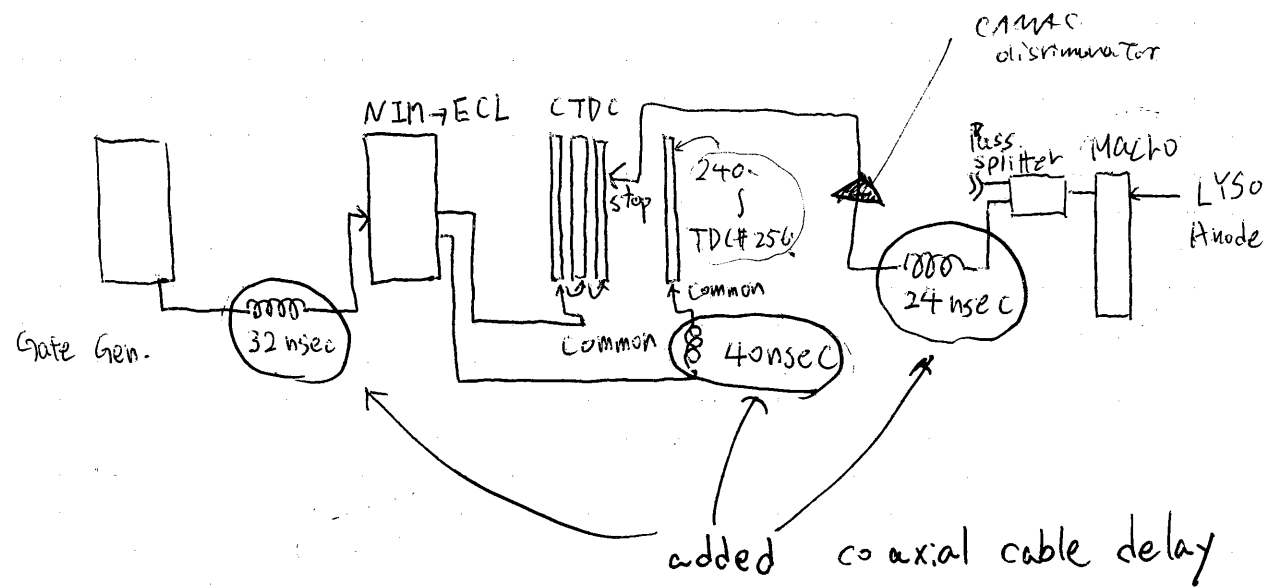 CAMAC
disriminator
NIM→ECL
CTDC
Pass
splitter
Macro
LYSO
Anode
stop
240
∫
TDC# 256
Common
24 nsec
Gate Gen.
32 nsec
Common
40nsec
added coaxial cable delay